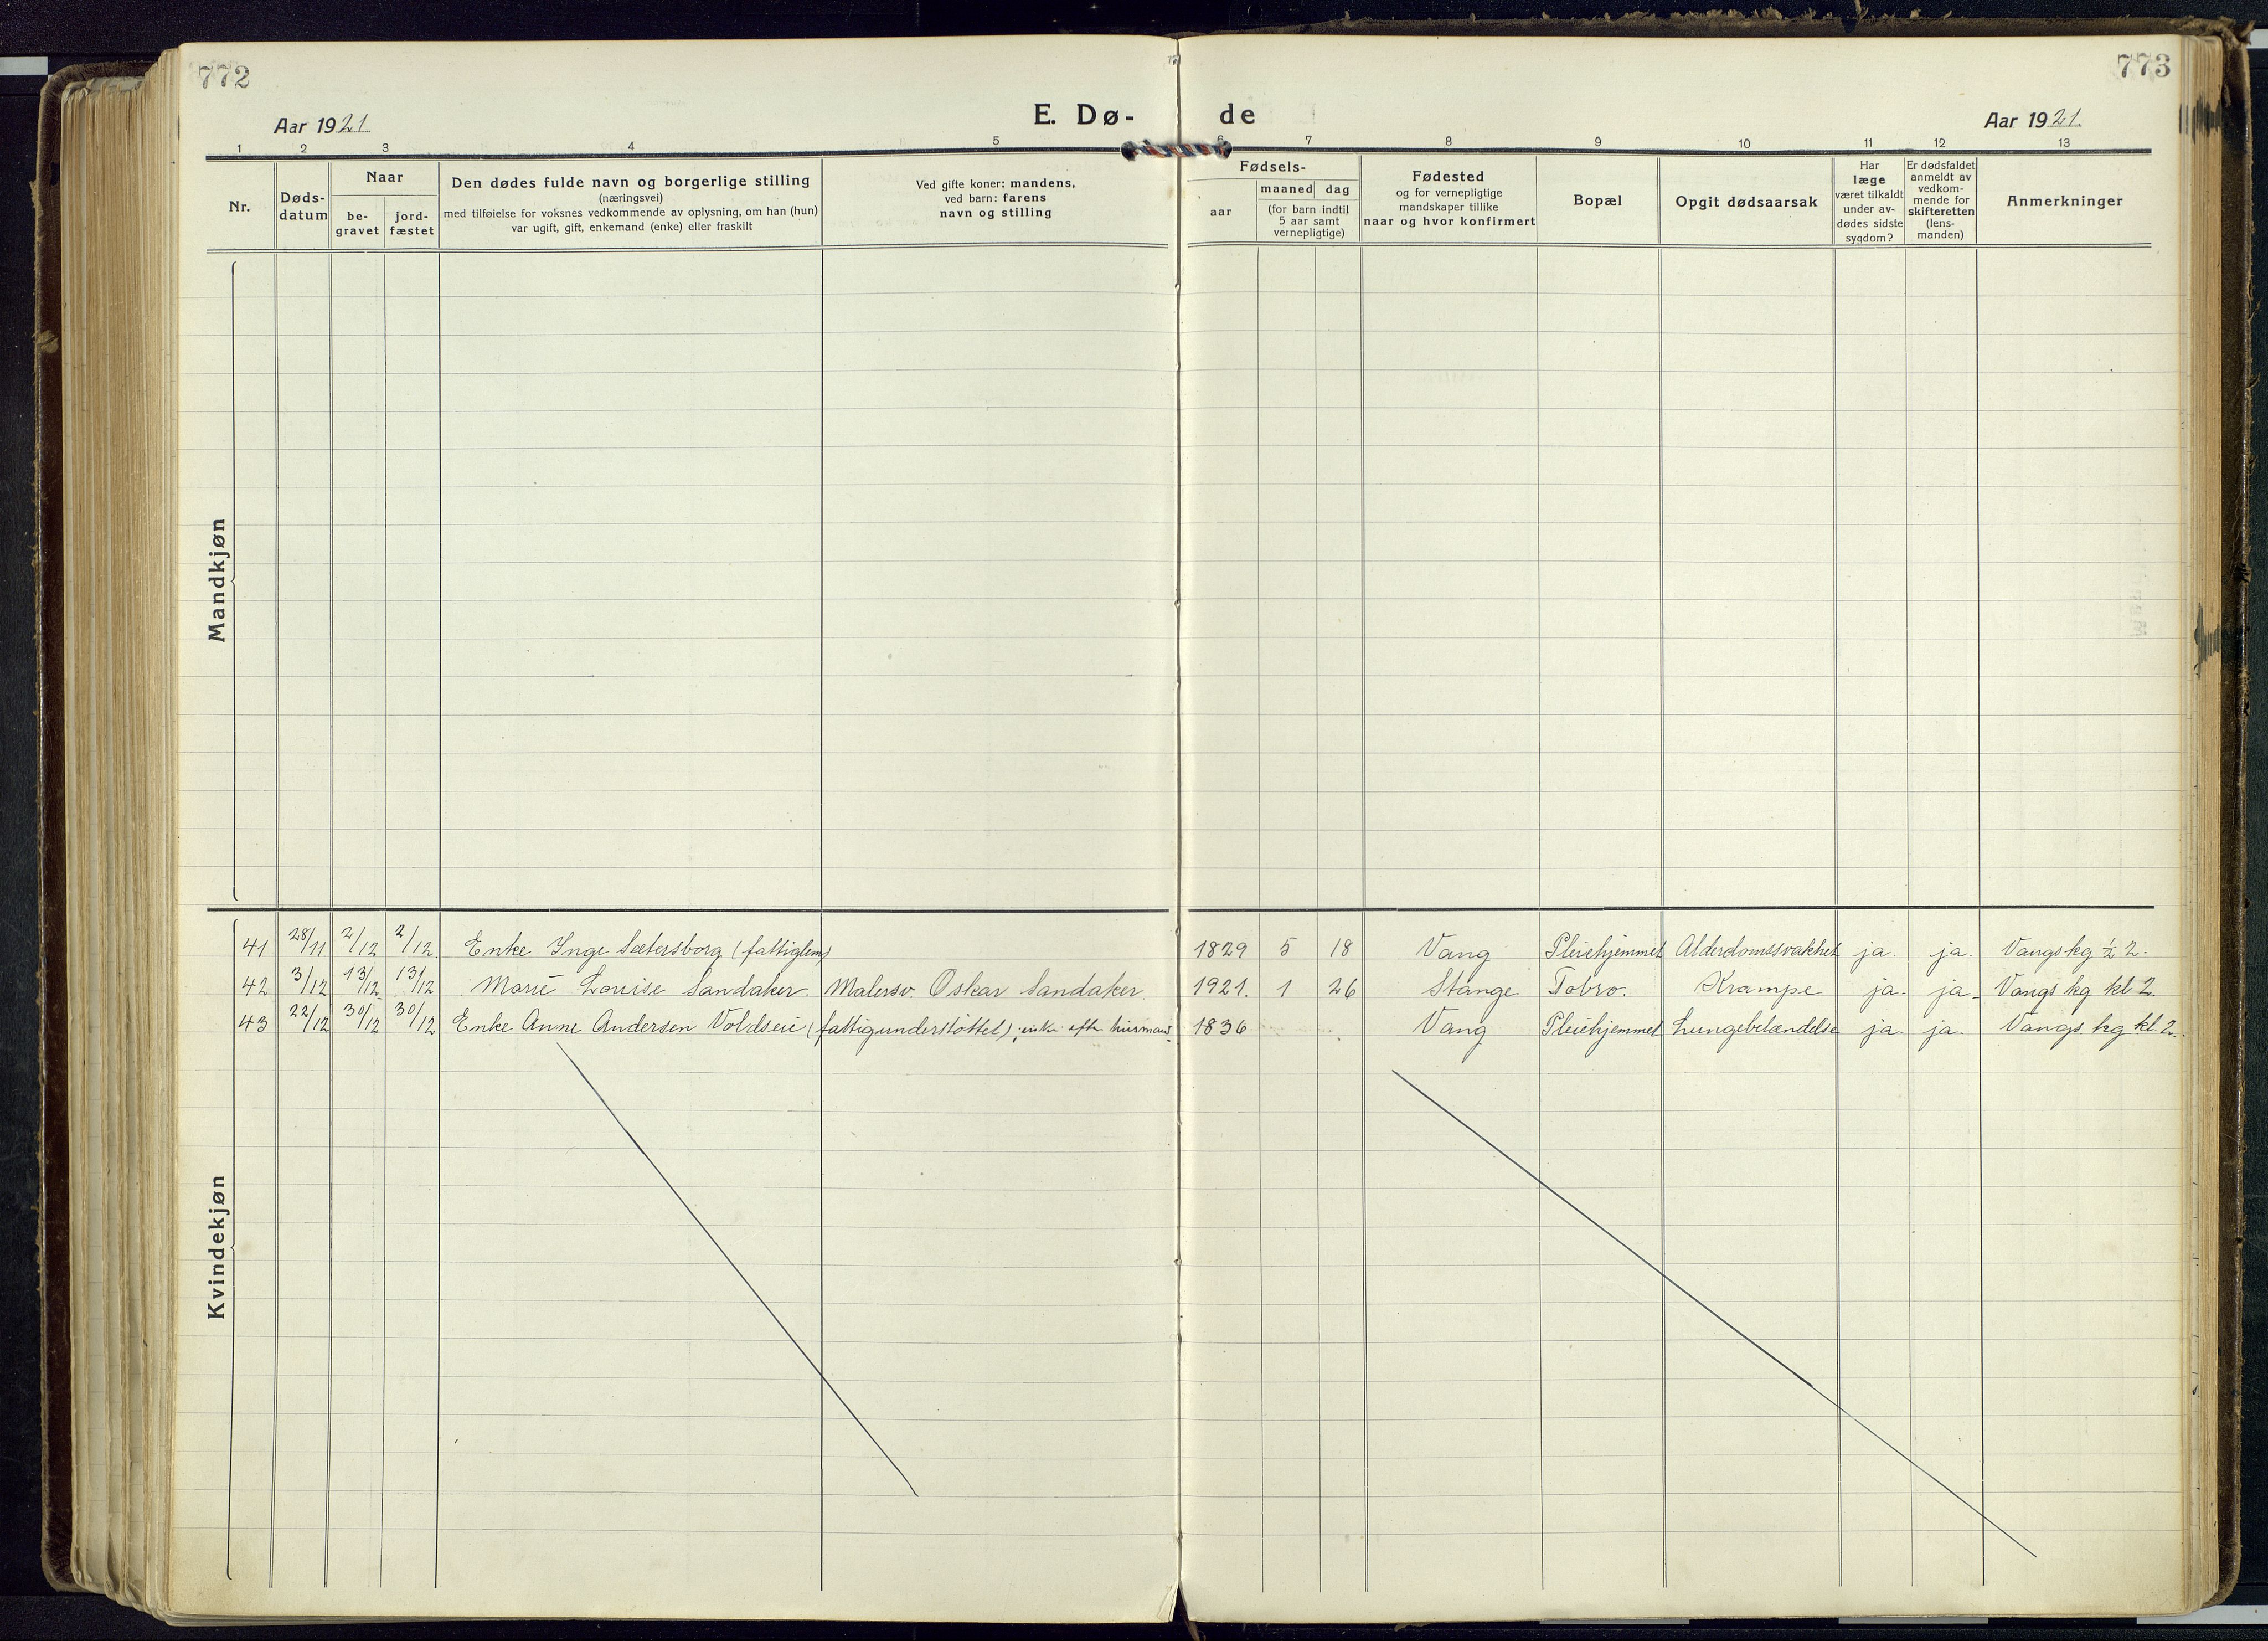 772
773
Aar 1921
E. Dø-
de
Aar 1921.
1 2 3 4 5 6 7 8 9 10 11 12 13
Nr.
Døds-
datum
Naar
be-
gravet
jord-
fæstet
Den dødes fulde navn og borgerlige stilling
(næringsvei)
med tilføielse for voksnes vedkommende av oplysning, om han (hun)
var ugift, gift, enkemand (enke) eller fraskilt
Ved gifte koner: mandens,
ved barn: farens
navn og stilling
Fødsels-
aar
maaned dag
(for barn indtil
5 aar samt
vernepligtige)
Fødested
og for vernepligtige
mandskaper tillike
naar og hvor konfirmert
Bopæl
Opgit dødsaarsak
Har
læge
været tilkaldt
under av-
dødes sidste
sygdom?
Er dødsfaldet
anmeldt av
vedkom-
mende for
skifteretten
(lens-
manden)
Anmerkninger
Mandkjøn
Kvindekjøn
41 28/11 2/12 2/12. Enke Inge Sætersborg (fattiglem) 1829 5 18 Vang Pleiehjemmet Alderdomssvakhet ja. ja. Vangs kg ½ 2.
42 3/12 13/12 13/12 Marie Louise Sandaker. Malersv. Oskar Sandaker. 1921. 1 26 Stange Tobro. Krampe ja. ja. Vangs kg kl 2.
43 22/12 30/12 30/12 Enke Anne Andersen Voldseie (fattigunderstøttet), enke efter husmand. 1836 Vang Pleiehjemmet Lungebetændelse ja. ja. Vangs kg kl. 2.